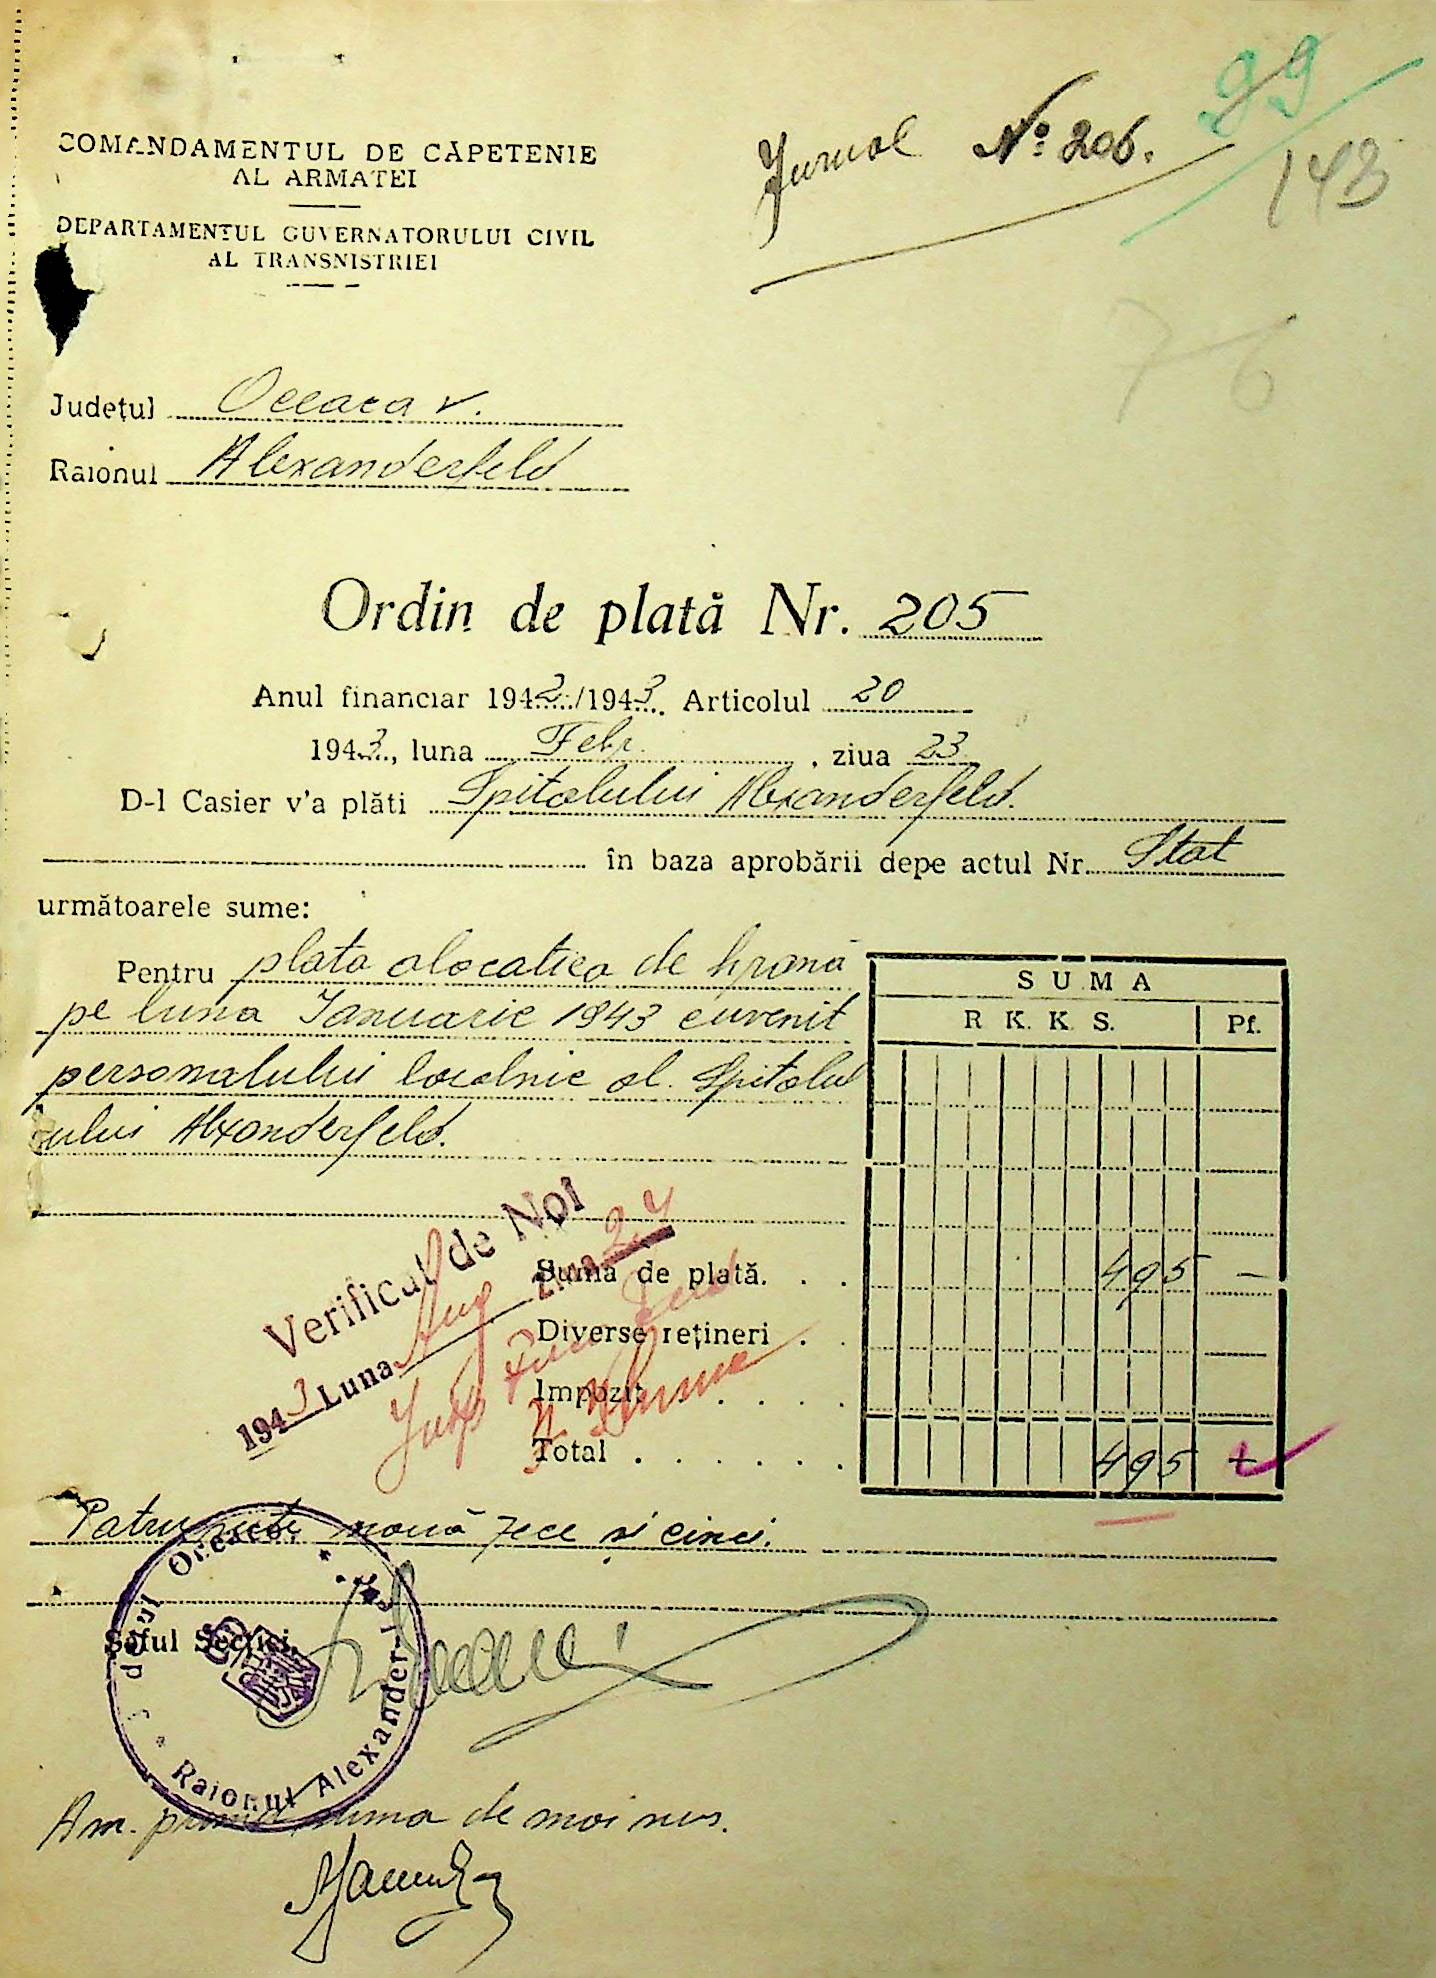 COMANDAMENTUL DE CĂPETENIE
AL ARMATEI
DEPARTAMENTUL GUVERNATORULUI CIVIL
AL TRANSNISTRIEI
Jurnal No: 206.
99
143
76
Județul Oceacov.
Raionul Alexanderfeld
Ordin de plată Nr. 205
Anul financiar 1942/1943 Articolul 20
1943, luna Febr., ziua 23
D-l Casier v'a plăti Spitalului Alexanderfeld.
în baza aprobării depe actul Nr. Stat
următoarele sume:
Pentru plata alocatiea de hrană
pe luna Ianuarie 1943 cuvenit
personalului localnic al Spitalu
ului Alexanderfeld.
SUMA
R K. K S. Pf.
Verificat de Noi
1943 Luna Aug Ziua 24
Suma de plată. . . 495 —
Diverse rețineri . .
Impozit . . . .
Total . . . . . . 495
Patru sute nouă zece și cinci.
Șeful Secției,
Județul Oceacov * Raionul Alexander-feld *
Am primit suma de mai sus.